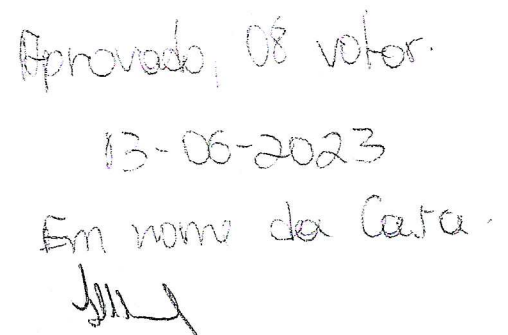 Aprovado, 08 votos.
13-06-2023
Em nome da Casa.